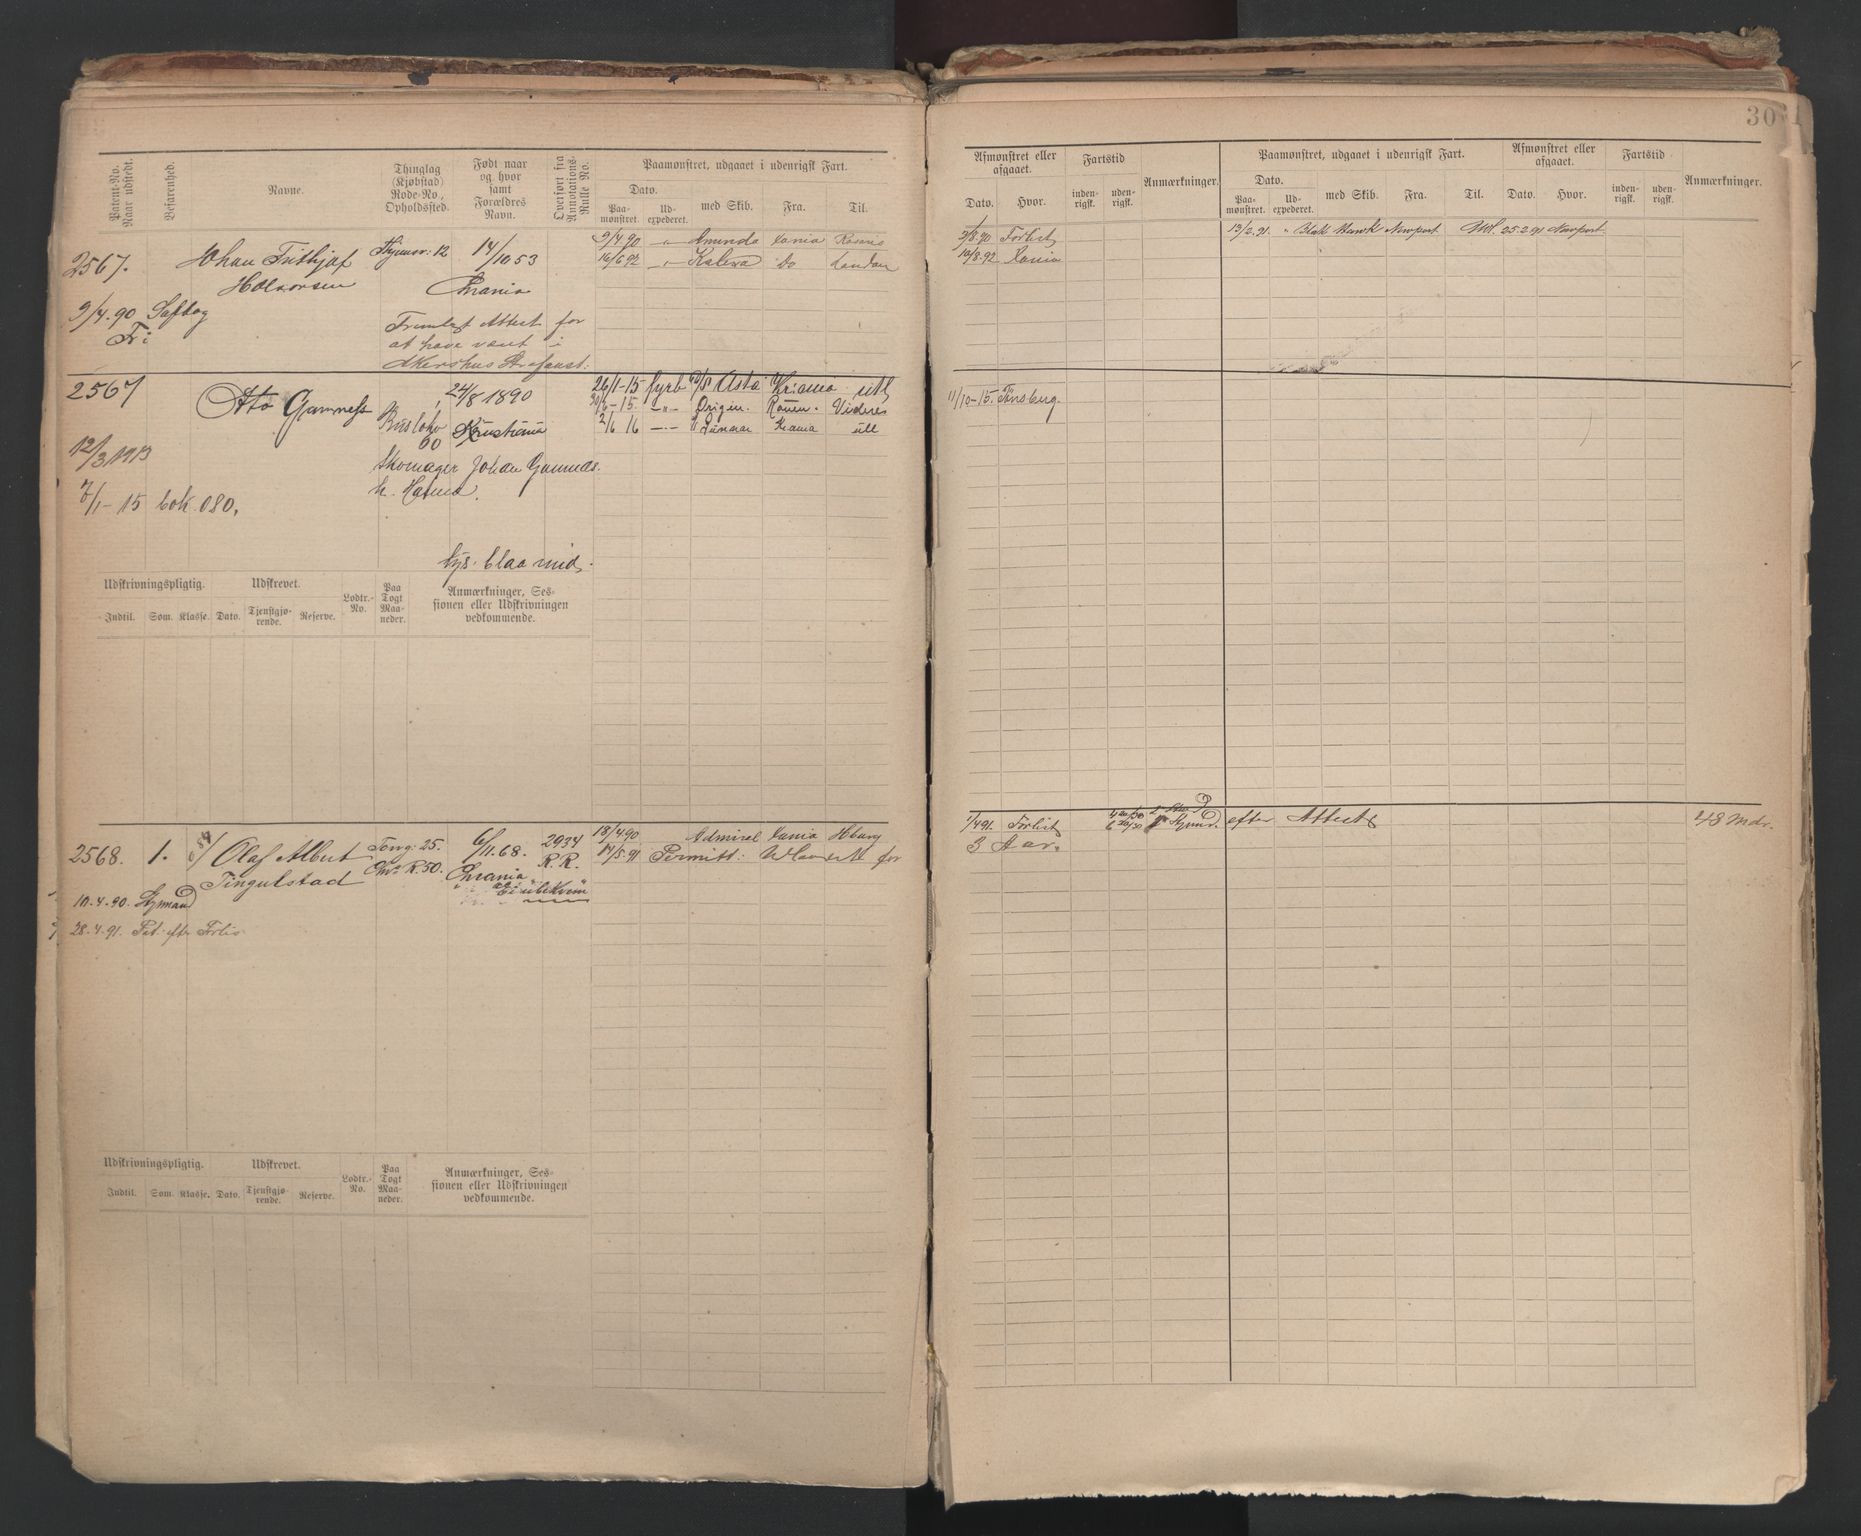 Patent-No. Naar udstedt.
Befarenhed.
Navne.
Thinglag (Kjøbstad) Rode-No., Opholdssted.
Født naar og hvor samt Forældres Navn.
Overført fra Annotations-Rulle No.
Paamønstret, udgaaet i udenrigsk Fart.
Dato.
Paamønstret.
Udexpederet.
med Skib.
Fra.
Til.
2567.
9/4.90
Fri
Johan Frithjof
Halvorsen
14/10 53
Chrania
Fremlagt Attest for
at have været i
Akershus Strafanst:
9/4 90 Amunda Xania Rosario
16/6 92 Kaleva Do London
2567
12/3 1913
7/1-15 bok 080.
24/8 1890
60 Kristiania
Skomager Johan
lys. blaa mid.
26/1-15 fyrb D/S Asta Kr:ania utl
30/6-15. Origen. Rouen.
2/6 16 Krania utl
Udskrivningspligtig.
Udskrevet.
Indtil.
Som.
Klasse.
Dato.
Tjenstgjørende.
Reserve.
Lodtr.-No.
Paa Togt Maaneder.
Anmærkninger, Sessionen eller Udskrivningen vedkommende.
2568. 1.
Olaf Albert
Tingulstad
10.4.90. Stymand
28.4.91. Pat. efter Forlis
Tong: 25.
R. 50.
6/11.68.
Chrania
2934
R. R.
18/4.90 Admiral Xania Hburg
14/5.91 Permitt: for
Udskrivningspligtig.
Udskrevet.
Indtil.
Som.
Klasse.
Dato.
Tjenstgjørende.
Reserve.
Lodtr.-No.
Paa Togt Maaneder.
Anmærkninger, Sessionen eller Udskrivningen vedkommende.
30
Afmønstret eller afgaaet.
Dato.
Hvor.
Fartstid
indenrigsk.
udenrigsk.
Anmærkninger.
Paamønstret, udgaaet i udenrigsk Fart.
Dato.
Paamønstret.
Udexpederet.
med Skib.
Fra.
Til.
Afmønstret eller afgaaet.
Dato.
Hvor.
Fartstid
indenrigsk.
udenrigsk.
Anmærkninger.
8.90 Forlist
10/8.92 Xania
13/2.91. Blak Hawk Newport 25.2.91 Newport
11/10-15. Tønsberg.
1/4 91. Forlist
3 Aar.
efter Attest
48 Mdr.